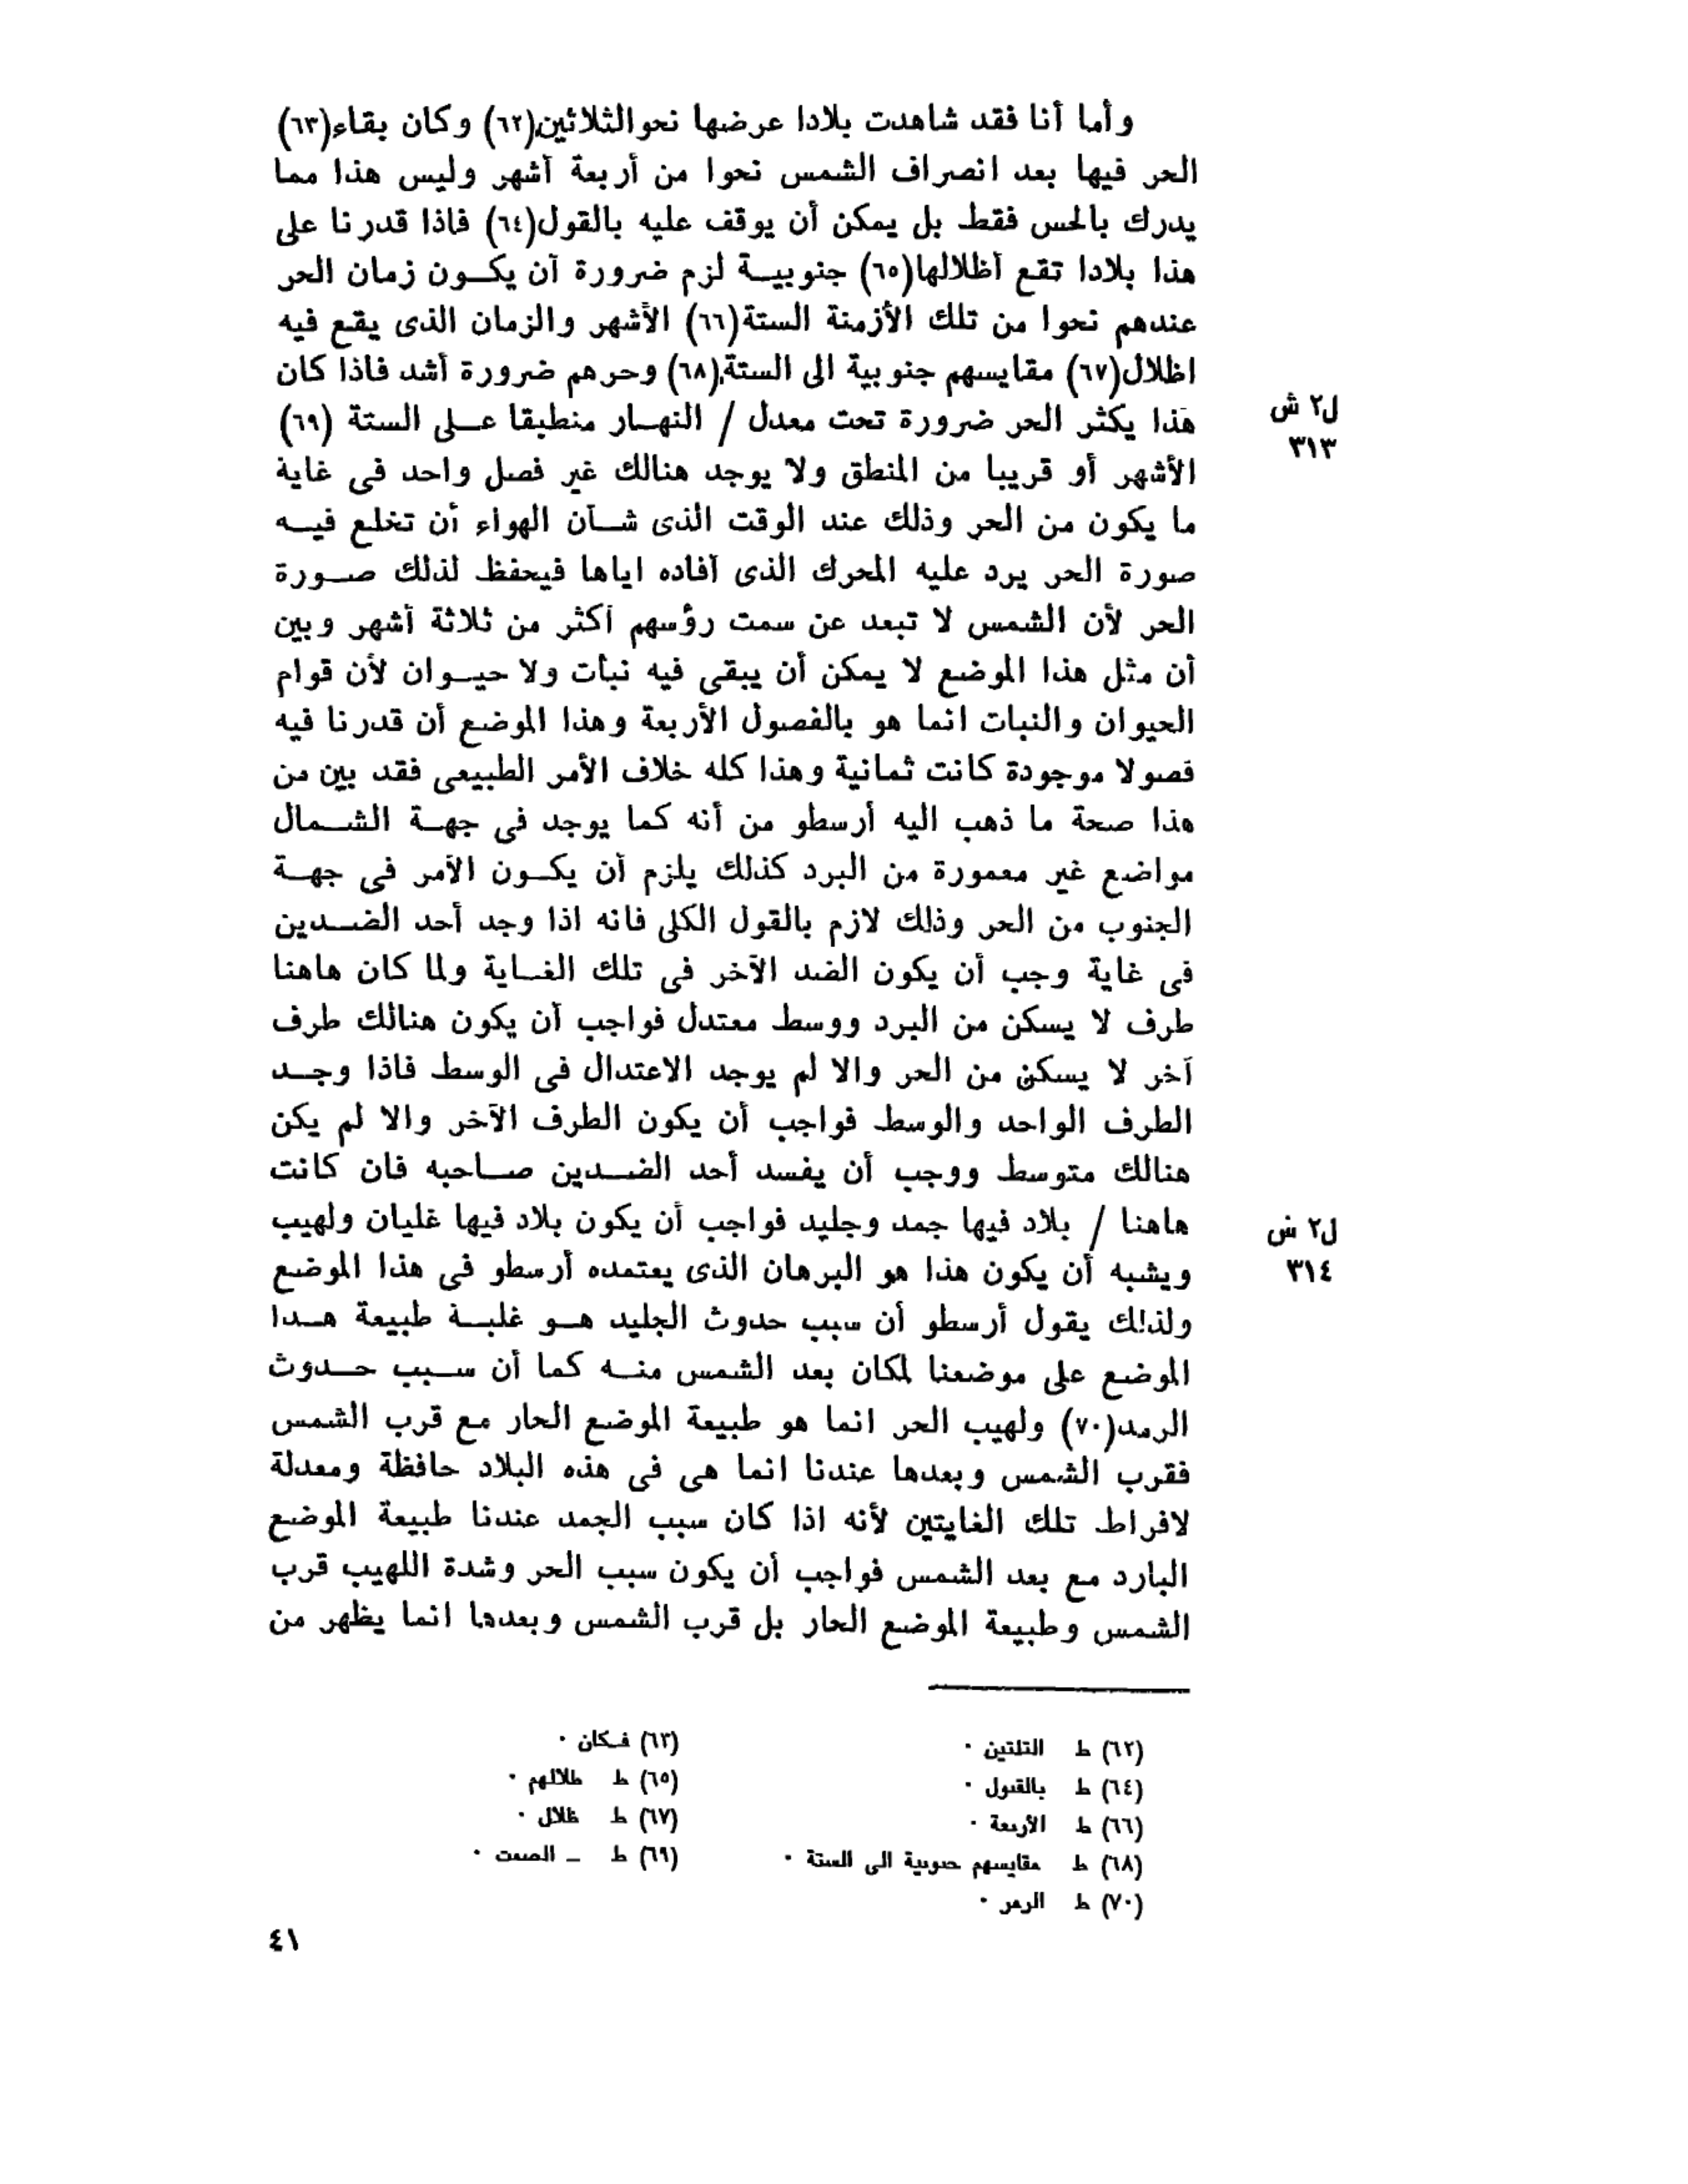 وأما أنا فقد شاهدت بلادا عرضها نحو الثلاثين(٦٢) وكان بقاء(٦٣)
الحر فيها بعد انصراف الشمس نحوا من أربعة أشهر وليس هذا مما
يدرك بالحس فقط بل يمكن أن يوقف عليه بالقول(٦٤) فاذا قدرنا على
هذا بلادا تقع أظلالها(٦٥) جنوبية لزم ضرورة أن يكون زمان الحر
عندهم نحوا من تلك الأزمنة الستة(٦٦) الأشهر والزمان الذى يقع فيه
اظلال(٦٧) مقايسهم جنوبية الى الستة(٦٨) وحرهم ضرورة أشد فاذا كان
هذا يكثر الحر ضرورة تحت معدل / النهار منطبقا على الستة (٦٩)
ل٢ ش
٣١٣
الأشهر أو قريبا من المنطق ولا يوجد هنالك غير فصل واحد فى غاية
ما يكون من الحر وذلك عند الوقت الذى شأن الهواء أن تخلع فيه
صورة الحر يرد عليه المحرك الذى أفاده اياها فيحفظ لذلك صورة
الحر لأن الشمس لا تبعد عن سمت رؤسهم أكثر من ثلاثة أشهر وبين
أن مثل هذا الموضع لا يمكن أن يبقى فيه نبات ولا حيوان لأن قوام
الحيوان والنبات انما هو بالفصول الأربعة وهذا الموضع أن قدرنا فيه
فصولا موجودة كانت ثمانية وهذا كله خلاف الأمر الطبيعى فقد بين من
هذا صحة ما ذهب اليه أرسطو من أنه كما يوجد فى جهة الشمال
مواضع غير معمورة من البرد كذلك يلزم أن يكون الأمر فى جهة
الجنوب من الحر وذلك لازم بالقول الكلى فانه اذا وجد أحد الضدين
فى غاية وجب أن يكون الضد الآخر فى تلك الغاية ولما كان هاهنا
طرف لا يسكن من البرد ووسط معتدل فواجب أن يكون هنالك طرف
آخر لا يسكن من الحر والا لم يوجد الاعتدال فى الوسط فاذا وجد
الطرف الواحد والوسط فواجب أن يكون الطرف الآخر والا لم يكن
هنالك متوسط ووجب أن يفسد أحد الضدين صاحبه فان كانت
هاهنا / بلاد فيها جمد وجليد فواجب أن يكون بلاد فيها غليان ولهيب
ل٢ ش
٣١٤
ويشبه أن يكون هذا هو البرهان الذى يعتمده أرسطو فى هذا الموضع
ولذلك يقول أرسطو أن سبب حدوث الجليد هو غلبة طبيعة هدا
الموضع على موضعنا لمكان بعد الشمس منه كما أن سبب حدوث
الرمد(٧٠) ولهيب الحر انما هو طبيعة الموضع الحار مع قرب الشمس
فقرب الشمس وبعدها عندنا انما هى فى هذه البلاد حافظة ومعدلة
لافراط تلك الغايتين لأنه اذا كان سبب الجمد عندنا طبيعة الموضع
البارد مع بعد الشمس فواجب أن يكون سبب الحر وشدة اللهيب قرب
الشمس وطبيعة الموضع الحار بل قرب الشمس وبعدها انما يظهر من
(٦٢) ط التلتين ·
(٦٣) فكان ·
(٦٤) ط بالقول ·
(٦٥) ط طلالهم ·
(٦٦) ط الأربعة ·
(٦٧) ط ظلال ·
(٦٨) ط مقايسهم جنوبية الى الستة ·
(٦٩) ط ــ الصمت ·
(٧٠) ط الرمر ·
٤١